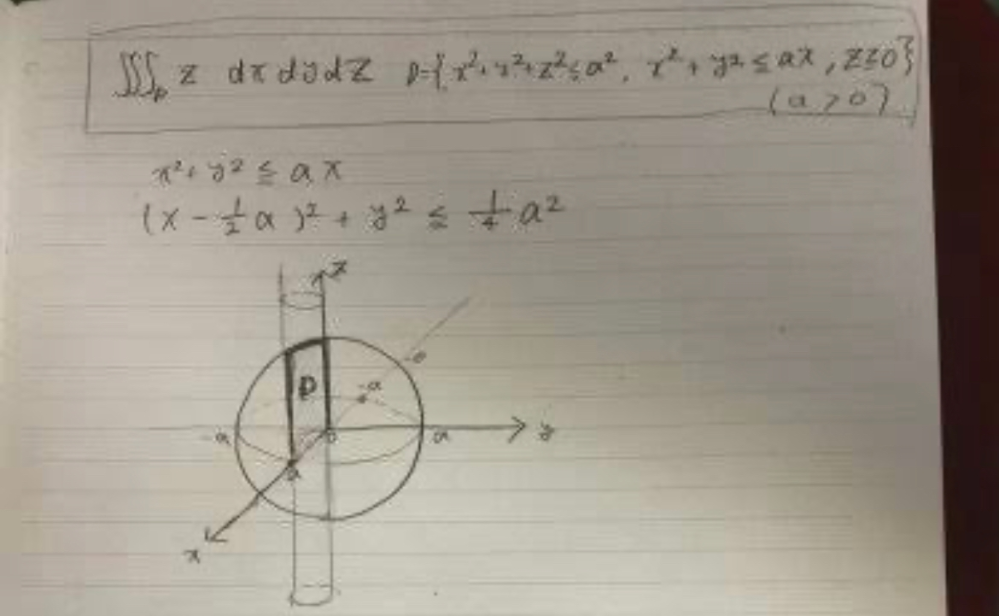 ∭_D z dxdydz D={x²+y²+z²≦a², x²+y²≦ax, z≧0}
(a>0)
x²+y²≦ax
(x-½a)²+y²≦¼a²
z
D
-a
-a
0
a
y
a
x